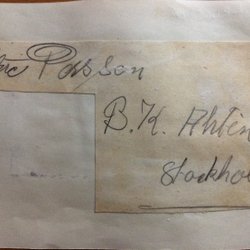 Persson
B. K. Ahlin
Stockho